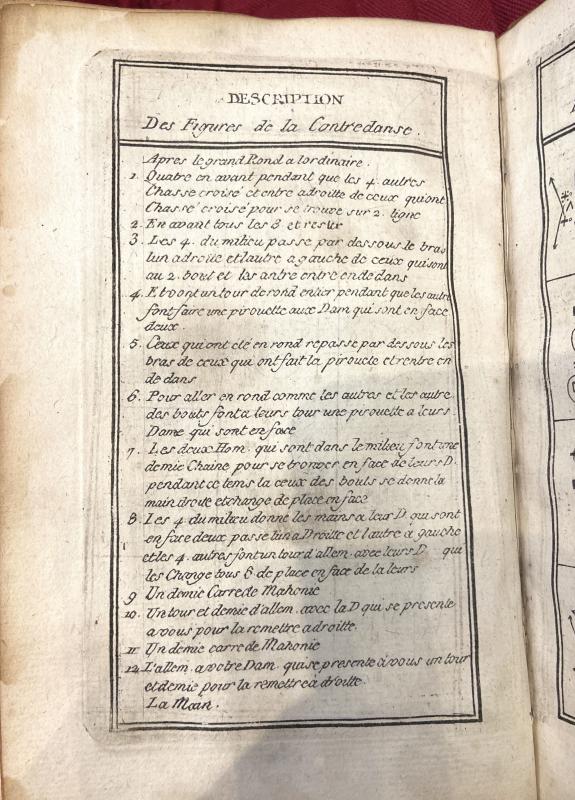 DESCRIPTION
Des Figures de la Contredanse.
Apres le grand Rond a lordinaire.
1. Quatre en avant pendant que les 4. autres
Chasse croisé et entre a droitte de ceux qui ont
Chassé croisé pour se trouve sur 2. ligne
2. En avant tous les 8 et resur
3. Les 4. du milieu passe par dessous le bras
lun a droite et lautre a gauche de ceux qui sont
au 2. bout et las antre entre en de dans
4. Et vont un tour de rond entier pendant que les autre
font faire une pirouette aux Dam qui sont en face
deux.
5. Ceux qui ont eté en rond repasse par dessous les
bras de ceux qui ont fait la pirouete et rentre en
de dans
6. Pour aller en rond comme les autres et les autre
des bouts font a leurs tour une pirouette a leurs
Dame qui sont en face
7. Les deux Hom. qui sont dans le milieu font une
demie Chaine pour se trouver en face de leurs D.
pendant ce tems la ceux des bouts se donne la
main droite et change de place en face
8. Les 4. du milieu donne les mains a leur D. qui sont
en face deux passe lun a Droitte et lautre a gauche
et les 4. autres font un tour d'allem. avec leurs D. qui
les Change tous 8 de place en face de la leurs
9 Un demie Carre de Mahonie
10. Un tour et demie d'allem. avec la D qui se presente
a vous pour la remettre a droitte.
11 Un demie carre de Mahonie
12. L'allem. a votre Dam. qui se presente à vous un tour
et demie pour la remettre à droitte.
La Main.